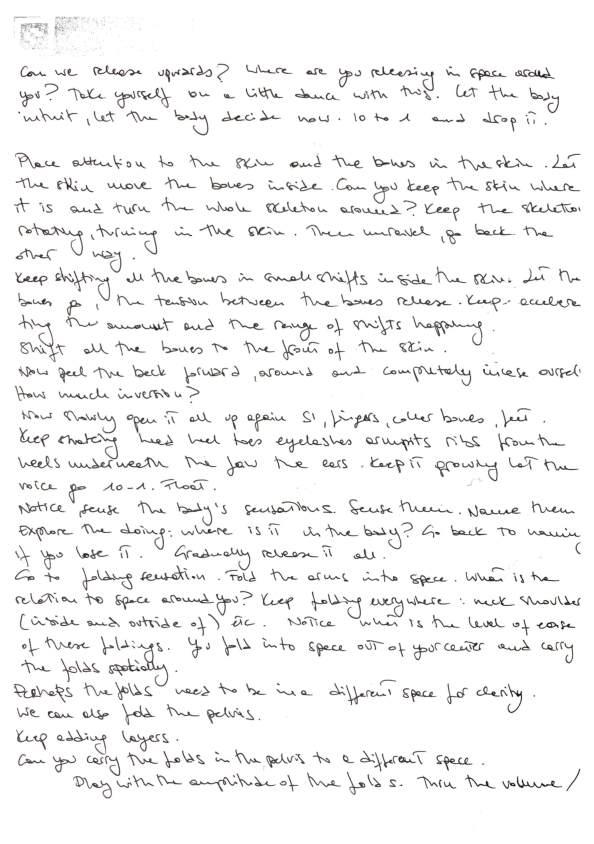 Can we release upwards? Where are you releasing in space around
you? Take yourself on a little dance with this. Let the body
intuit, let the body decide now. 10 to 1 and drop it.
Place attention to the skin and the bones in the skin. Let
the skin move the bones inside. Can you keep the skin where
it is and turn the whole skeleton around? Keep the skeleto
rotating, turning in the skin. Then unravel, go back the
other way.
Keep shifting all the bones in small shifts inside the skin. Let the
bones go, the tension between the bones release. Keep accelera
ting the amount and the range of shifts happening.
Shift all the bones to the front of the skin.
Now peel the back forward, around and completely incase oursel
How much inversion?
Now slowly open it all up again SI, fingers, collar bones, feet.
Keep shaking head heel toes eyelashes armpits ribs from the
heels underneath the jaw the ears. Keep it growing let the
voice go 10-1. Float.
Notice, sense the body's sensations. Sense them. Name them
Explore the doing: where is it in the body? Go back to namin
if you lose it. Gradually release it all.
Go to folding sensation. Fold the arms into space. What is the
relation to space around you? Keep folding everywhere: neck shoulder
(inside and outside of) etc. Notice what is the level of ease
of these foldings. You fold into space out of your center and carry
the folds spatially.
Perhaps the folds need to be in a different space for clarity.
We can also fold the pelvis.
Keep adding layers.
Can you carry the folds in the pelvis to a different space.
Play with the amplitude of the folds. Thru the volume /